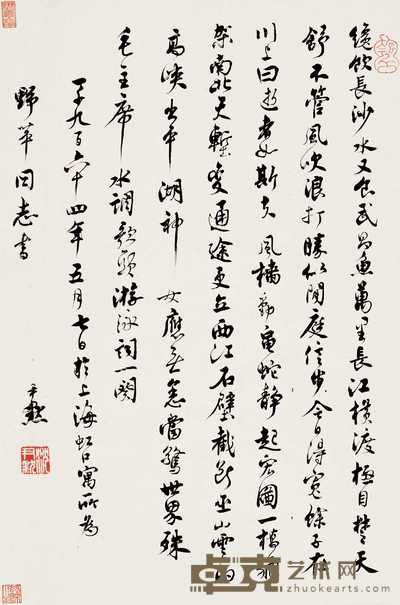 纔飲長沙水又食武昌魚萬里長江橫渡極目楚天
舒不管風吹浪打勝似閒庭信步今日得寬餘子在
川上曰逝者如斯夫風檣動龜蛇靜起宏圖一橋飛
架南北天塹變通途更立西江石壁截斷巫山雲雨
高峽出平湖神女應無恙當驚世界殊
毛主席水調歌頭游泳詞一闋
一千九百六十四年五月七日於上海虹口寓所為
歸華同志書
尹默
卓克艺术网